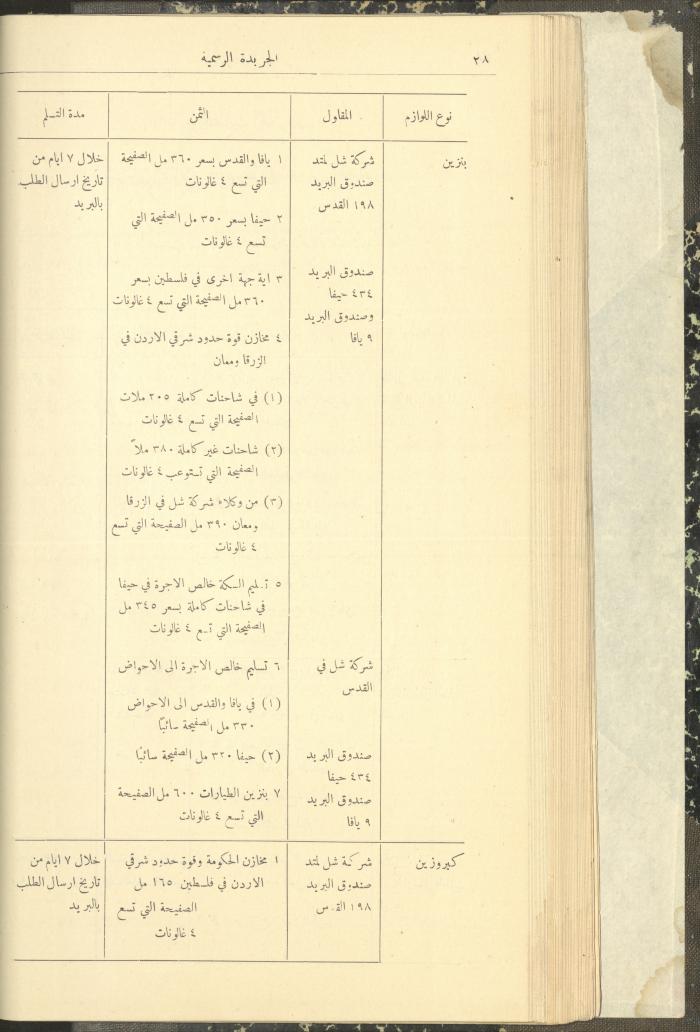 ٢٨
الجريدة الرسمية
نوع اللوازم
المقاول
الثمن
مدة التسلم
بنزين
شركة شل لمتد
صندوق البريد
١٩٨ القدس
صندوق البريد
٤٣٤ حيفا
وصندوق البريد
٩ يافا
١ يافا والقدس بسعر ٣٦٠ مل الصفيحة
التي تسع ٤ غالونات
٢ حيفا بسعر ٣٥٠ مل الصفيحة التي
تسع ٤ غالونات
٣ اية جهة اخرى في فلسطين بسعر
٣٦٠ مل الصفيحة التي تسع ٤ غالونات
٤ مخازن قوة حدود شرقي الاردن في
الزرقا ومعان
(١) في شاحنات كاملة ٢٠٥ ملات
الصفيحة التي تسع ٤ غالونات
(٢) شاحنات غير كاملة ٣٨٠ ملاً
الصفيحة التي تستوعب ٤ غالونات
(٣) من وكلاء شركة شل في الزرقا
ومعان ٣٩٠ مل الصفيحة التي تسع
٤ غالونات
٥ تسليم السكة خالص الاجرة في حيفا
في شاحنات كاملة بسعر ٣٤٥ مل
الصفيحة التي تسع ٤ غالونات
شركة شل في
القدس
٦ تسليم خالص الاجرة الى الاحواض
(١) في يافا والقدس الى الاحواض
٣٣٠ مل الصفيحة سائبًا
صندوق البريد
٤٣٤ حيفا
صندوق البريد
٩ يافا
(٢) حيفا ٣٢٠ مل الصفيحة سائبًا
٧ بنزين الطيارات ٦٠٠ مل الصفيحة
التي تسع ٤ غالونات
خلال ٧ ايام من
تاريخ ارسال الطلب
بالبريد
كيروزين
شركة شل لمتد
صندوق البريد
١٩٨ القدس
١ مخازن الحكومة وقوة حدود شرقي
الاردن في فلسطين ١٦٥ مل
الصفيحة التي تسع
٤ غالونات
خلال ٧ ايام من
تاريخ ارسال الطلب
بالبريد